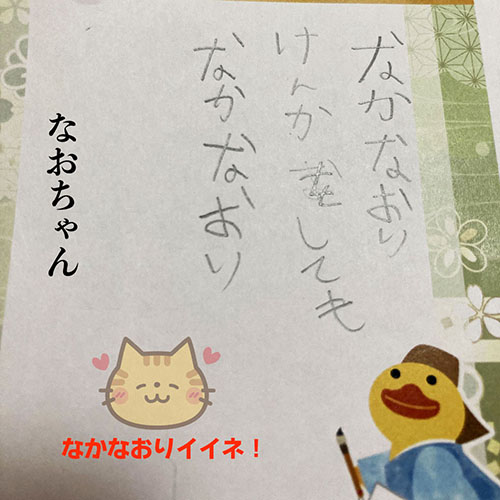 なかなおり
けんかをしても
なかなおり
なおちゃん
なかなおりイイネ！